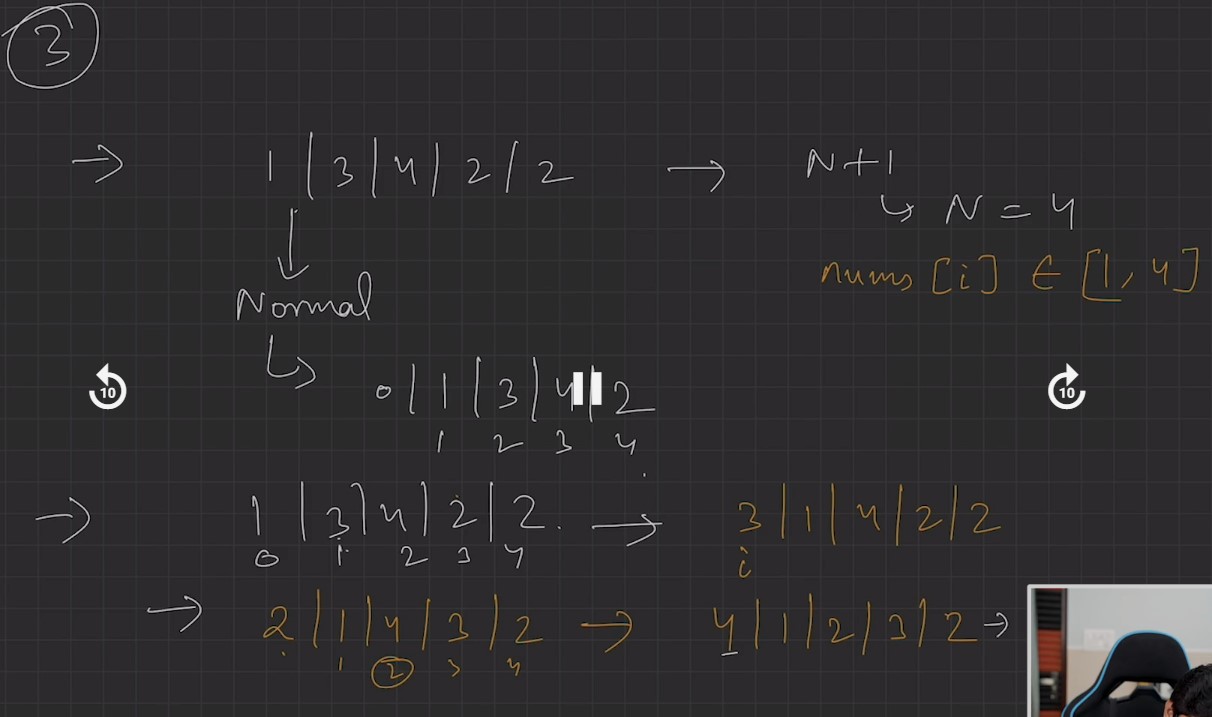 3
→ 1 | 3 | 4 | 2 | 2 → N+1
↳ N = 4
nums [i] ∈ [1, 4]
↓
Normal
↳ 0 | 1 | 3 | 4 | 2
1 2 3 4
10 10
→ 1 | 3 | 4 | 2 | 2 . → 3 | 1 | 4 | 2 | 2
0 1 2 3 4 i
→ 2 | 1 | 4 | 3 | 2 → 4 | 1 | 2 | 3 | 2 →
1 2 3 4